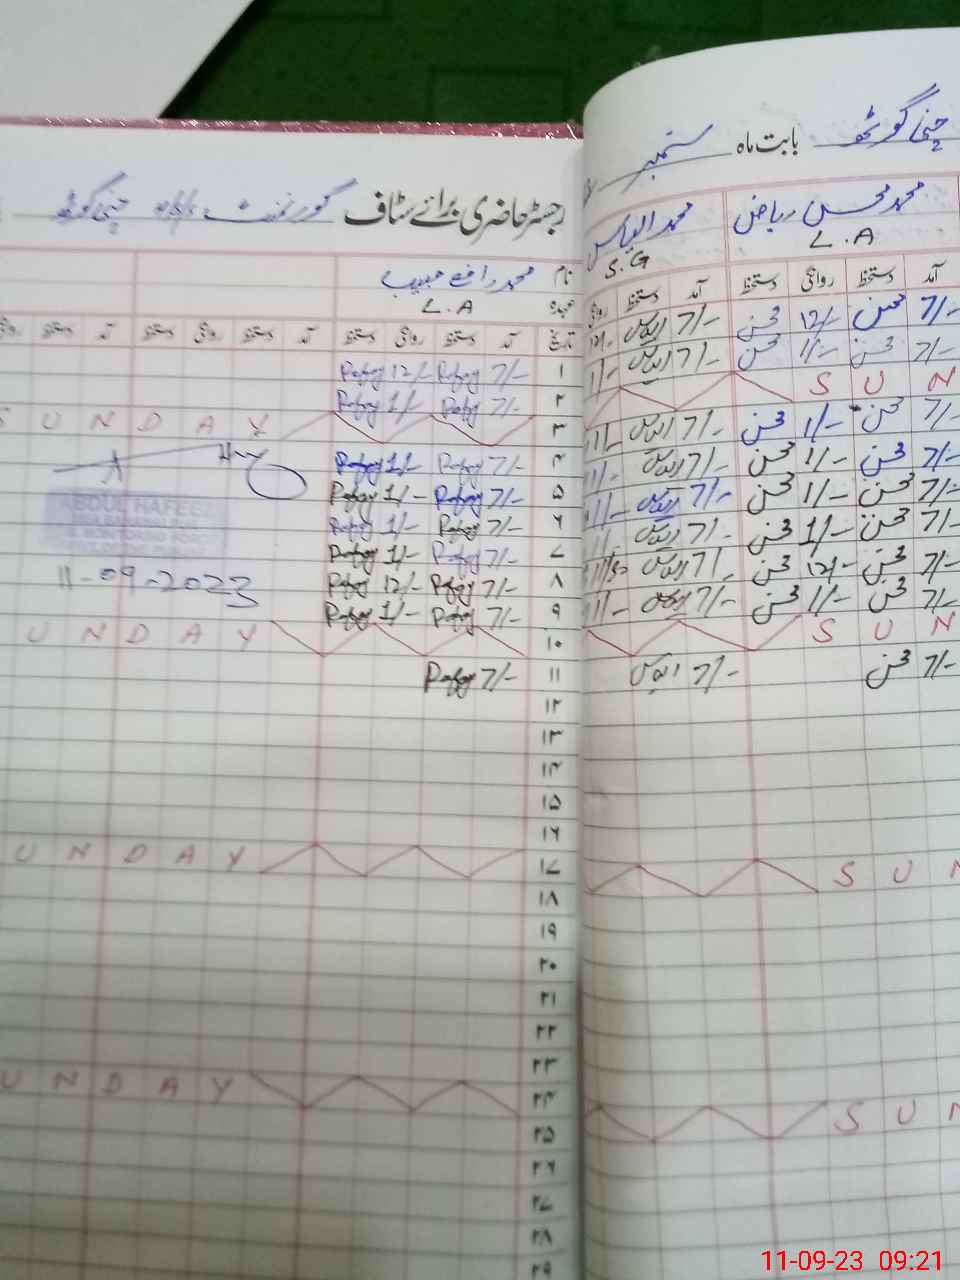 چنی گوٹھ بابت ماہ ستمبر
رجسٹر حاضری برائے سٹاف گورنمنٹ چنی گوٹھ
محمد محسن ریاض محمد الیاس
L.A S.G
آمد دستخط روانگی دستخط آمد دستخط روانگی
7/- محسن 12/- محسن 7/- الیاس 12/-
7/- محسن 1/- محسن 7/- الیاس 1/-
S U N
7/- محسن 1/- محسن 7/- الیاس 1/-
7/- محسن 1/- محسن 7/- الیاس 1/-
7/- محسن 1/- محسن 7/- الیاس 1/-
7/- محسن 1/- محسن 7/- الیاس 1/-
7/- محسن 12/- محسن 7/- الیاس
7/- محسن 1/- محسن 7/- الیاس 1/-
S U N
7/- محسن 7/- الیاس
S U N
S U N
نام محمد رافع حبیب
عہدہ L.A
تاریخ آمد دستخط روانگی دستخط آمد دستخط روانگی دستخط آمد دستخط روانگی
۱ 7/- Rafay 12/- Rafay
۲ 7/- Rafay 1/- Rafay
۳ S U N D A Y
۴ 7/- Rafay 1/- Rafay
۵ 7/- Rafay 1/- Rafay
۶ 7/- Rafay 1/- Rafay
۷ 7/- Rafay 1/- Rafay
۸ 7/- Rafay 12/- Rafay
۹ 7/- Rafay 1/- Rafay
۱۰ U N D A Y
۱۱ 7/- Rafay
۱۲
۱۳
۱۴
۱۵
۱۶
۱۷ U N D A Y
۱۸
۱۹
۲۰
۲۱
۲۲
۲۳
۲۴ U N D A Y
۲۵
۲۶
۲۷
۲۸
۲۹
ABDUL HAFEEZ
11-09-2023
11-09-23 09:21